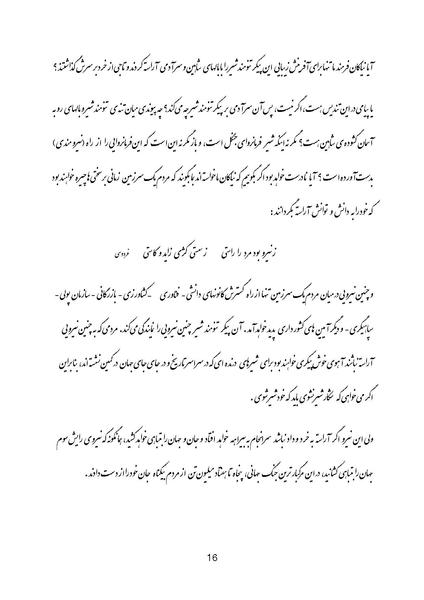 آیا نیاکان فرمند ما تنها برای آفرینش زیبایی این پیکر تنومند شیر را با بالهای شاهین و سر آدمی آراسته کردند و تاجی از خرد بر سرش گذاشتند ؟
یا پیامی در این تندیس هست، اگر نیست، پس آن سر آدمی بر پیکر تنومند شیر چه می کند؟ چه پیوندی میان تنه ی تنومند شیر و بالهای رو به
آسمان گشوده ی شاهین هست؟ مگر نه اینکه شیر فرمانروای جنگل است، و باز مگر نه این است که این فرمانروایی را از راه (نیرومندی)
بدست آورده است ؟ آیا نادرست خواهد بود اگر بگوییم که نیاکان ما خواسته اند با ما بگویند که مردم یک سرزمین زمانی بر سختی ها چیره خواهند بود
که خود را به دانش و توانش آراسته بگردانند :
ز نیرو بود مرد را راستی ز سستی کژی زاید و کاستی فردوسی
و چنین نیرویی در میان مردم یک سرزمین تنها از راه گسترش کانونهای دانشی - فناوری - کشاورزی - بازرگانی - سازمان پولی -
سپاهیگری - و دیگر آیین های کشورداری پدید خواهد آمد. آن پیکر تنومند شیر چنین نیرویی را نمایندگی می کند. مردمی که به چنین نیرویی
آراسته نباشند آهوی خوش پیکری خواهند بود برای شیرهای درنده ای که در سراسر تاریخ و در جای جای جهان در کمین نشسته اند، بنابراین
اگر می خواهی که شکار شیر نشوی باید که خود شیر شوی .
ولی این نیرو اگر آراسته به خرد و داد نباشد سرانجام به بیراهه خواهد افتاد و جان و جهان را بتباهی خواهد کشید، چنانکه نیروی رایش سوم
جهان را بتباهی کشانید، در این مرگبار ترین جنگ جهانی، پنجاه تا هفتاد میلیون تن از مردم بیگناه جان خود را از دست دادند .
16